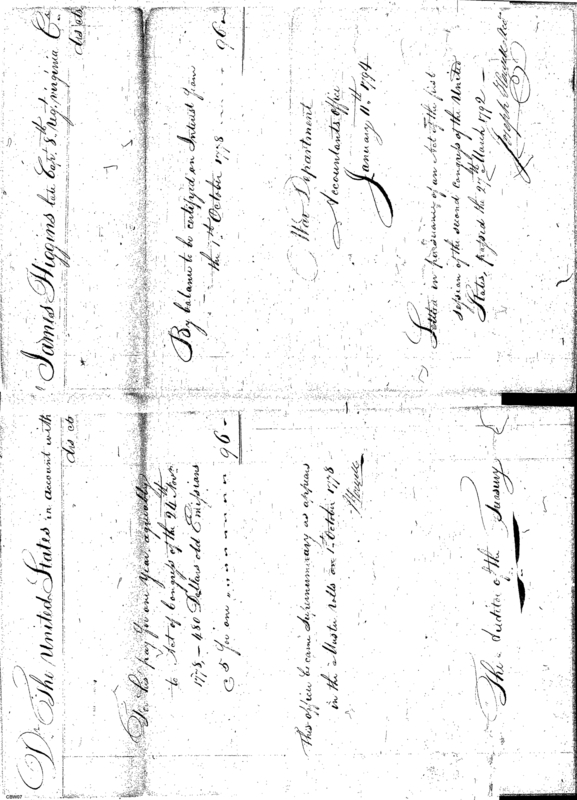 Dr. The United States in account with
Dls cts
To his pay for one year, agreeably
to Act of Congress of the 24th Novr.
1778, — 480 Dollars old Emissions
@ 5 for one
96 —
This officer became Supernumerary as appears
in the Muster rolls on 1st October 1778 —
The Auditor of the Treasury
James Higgins late Capt. 8th Reg. virginia Cr.
Dls cts
By balance to be certified on Interest from
the 1st October 1778
96 —
War Department
Accountants Office
January 11th 1794
Settled in pursuance of an Act of the first
session of the second Congress of the United
States, passed the 27th March 1792 —
Joseph
CBW07